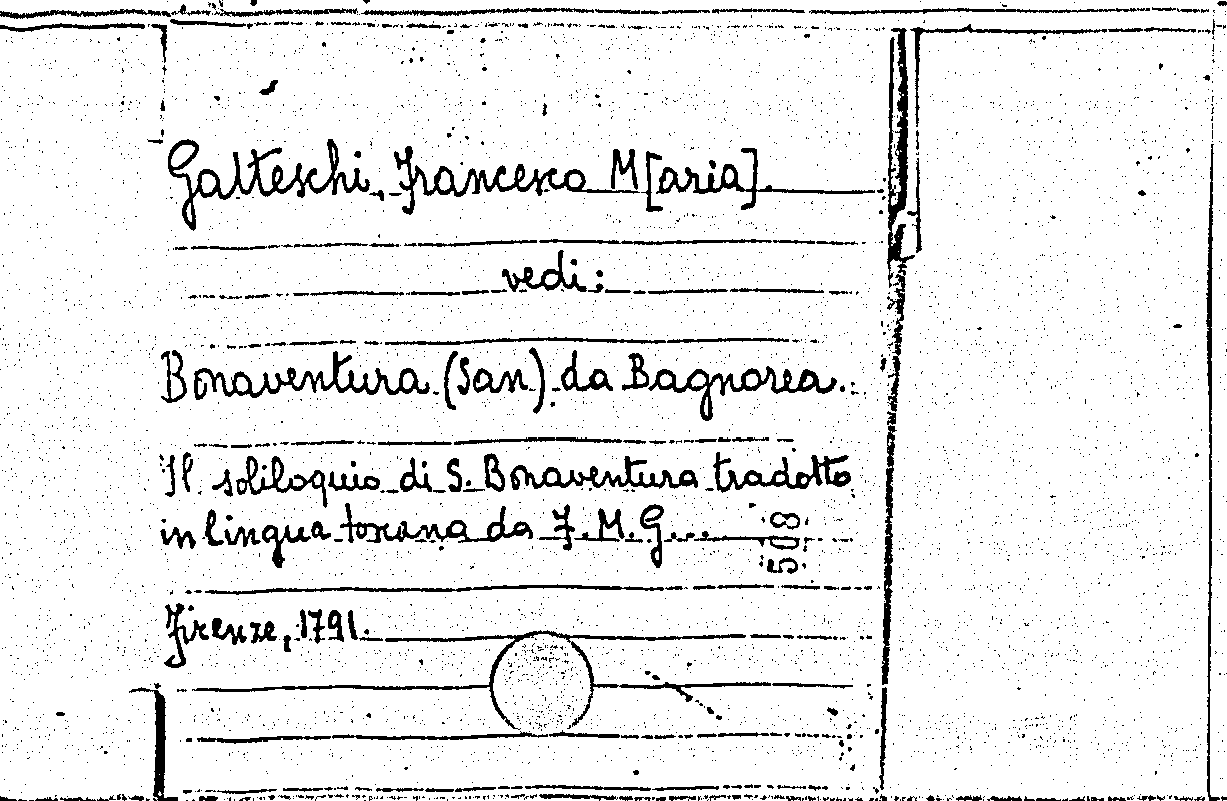 Galteschi, Francesco M[aria].
vedi:
Bonaventura (San) da Bagnorea.
Il soliloquio di S. Bonaventura tradotto
in lingua toscana da F. M. G...
508
Firenze, 1791.